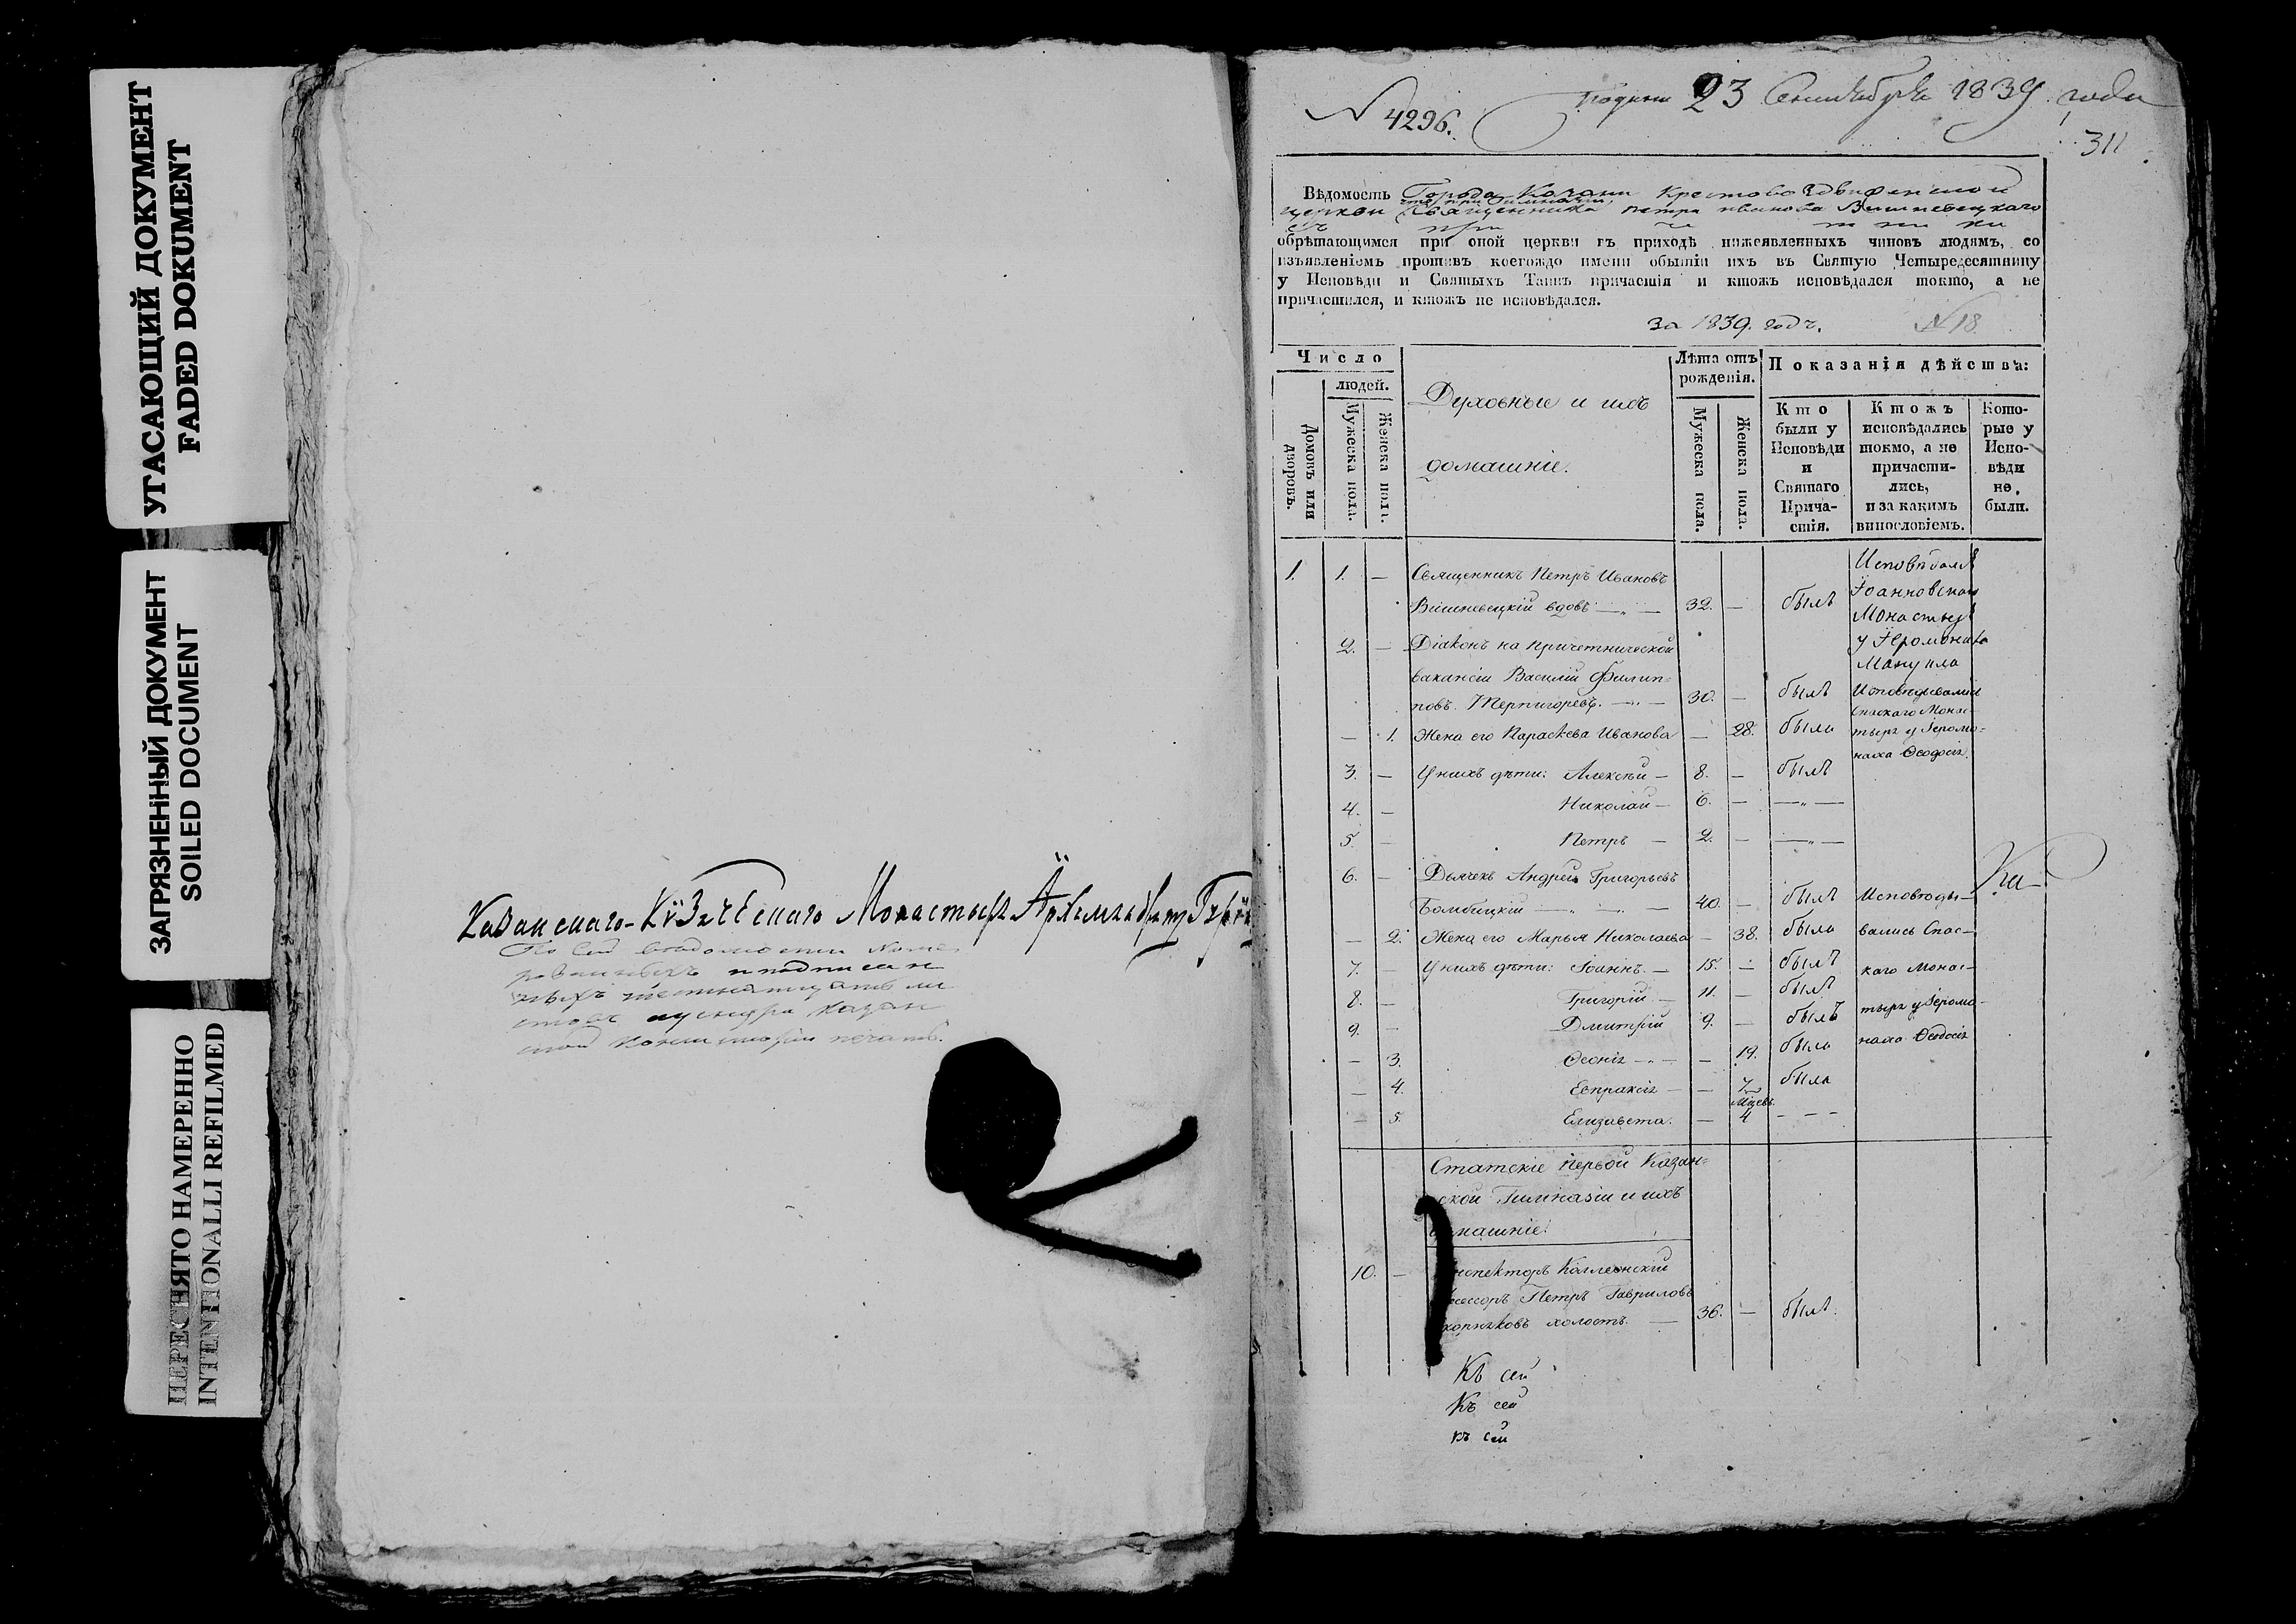 УГАСАЮЩИЙ ДОКУМЕНТ
FADED DOKUMENT
ЗАГРЯЗНЕННЫЙ ДОКУМЕНТ
SOILED DOCUMENT
ПЕРЕСНЯТО НАМЕРЕННО
INTENTIONALLI REFILMED
Казанскаго-Кѵзическаго Монастыря Архимандрит
По сей ведомости
и подписан
листовъ
печать.
N 4296.
23 Сентября 1839 года
311
Вѣдомость Города Казани Крестовоздвиженской
что при Гимназіи,
церкви Священника Петра Иванова Вишневецкаго
съ при
обрѣтающимся при оной церкви въ приходѣ нижеявленныхъ чиновъ людямъ, со
изъявленіемъ противъ коегождо имени обытіи ихъ въ Святую Четыредесятницу
у Исповѣди и Святыхъ Таинъ причастія и ктожъ исповѣдался токмо, а не
причастился, и ктожъ не исповѣдался.
за 1839. годъ. N 18
Число
людей.
Домовъ или дворовъ.
Мужеска пола.
Женска пола.
Духовные и ихъ
домашніе.
Лѣта отъ
рожденія.
Мужеска пола.
Женска пола.
Показанія дѣйства:
Кто
были у
Исповѣди
и
Святаго
Прича-
стія.
Ктожъ
исповѣдались
токмо, а не
причасти-
лись,
и за какимъ
винословіемъ.
Кото-
рые у
Испо-
вѣди
не
были.
1. 1. — Священникъ Петръ Ивановъ
Вишневецкій вдовъ — „ — 32. — былъ
Исповѣдался
Іоанновскаго
Монастыр
у Іеромонаха
Мануила
2. — Діаконъ на причетнической
вакансіи Василій Филип-
повъ Терпигоревъ. — „ — 30. — былъ
— 1. Жена его Параскева Иванова — 28. была
Исповѣдывались
Спаскаго Монас-
тыря у Іеромо-
наха Ѳеодосія.
3. — У нихъ дѣти: Алексѣй — 8. — былъ
4. — Николай — 6. — — „ —
5. — Петръ — 2. — — „ —
6. — Дьячекъ Андрей Григорьевъ
Бамбицкій — „ — „ — 40. — былъ Исповѣды-
— 2. Жена его Марья Николаева — 38. была вались Спас-
7. — У нихъ дѣти: Іоаннъ. — 15. — былъ каго Монас-
8. — Григорій — 11. — былъ
9. — Дмитрій 9. — былъ тыря у Іеромо-
— 3. Ѳеонія — „ — — 19. была наха Ѳеодосія
— 4. Евпраксія — — 7 была
— 5. Елизавета. — Мцевъ. 4 - - -
Статскіе Первой Казан-
ской Гимназіи и ихъ
домашніе.
10. — Инспекторъ Коллежскій
Ассессоръ Петръ Гавриловъ
холостъ. — 36. — былъ.
Къ сей
Къ сей
къ сей